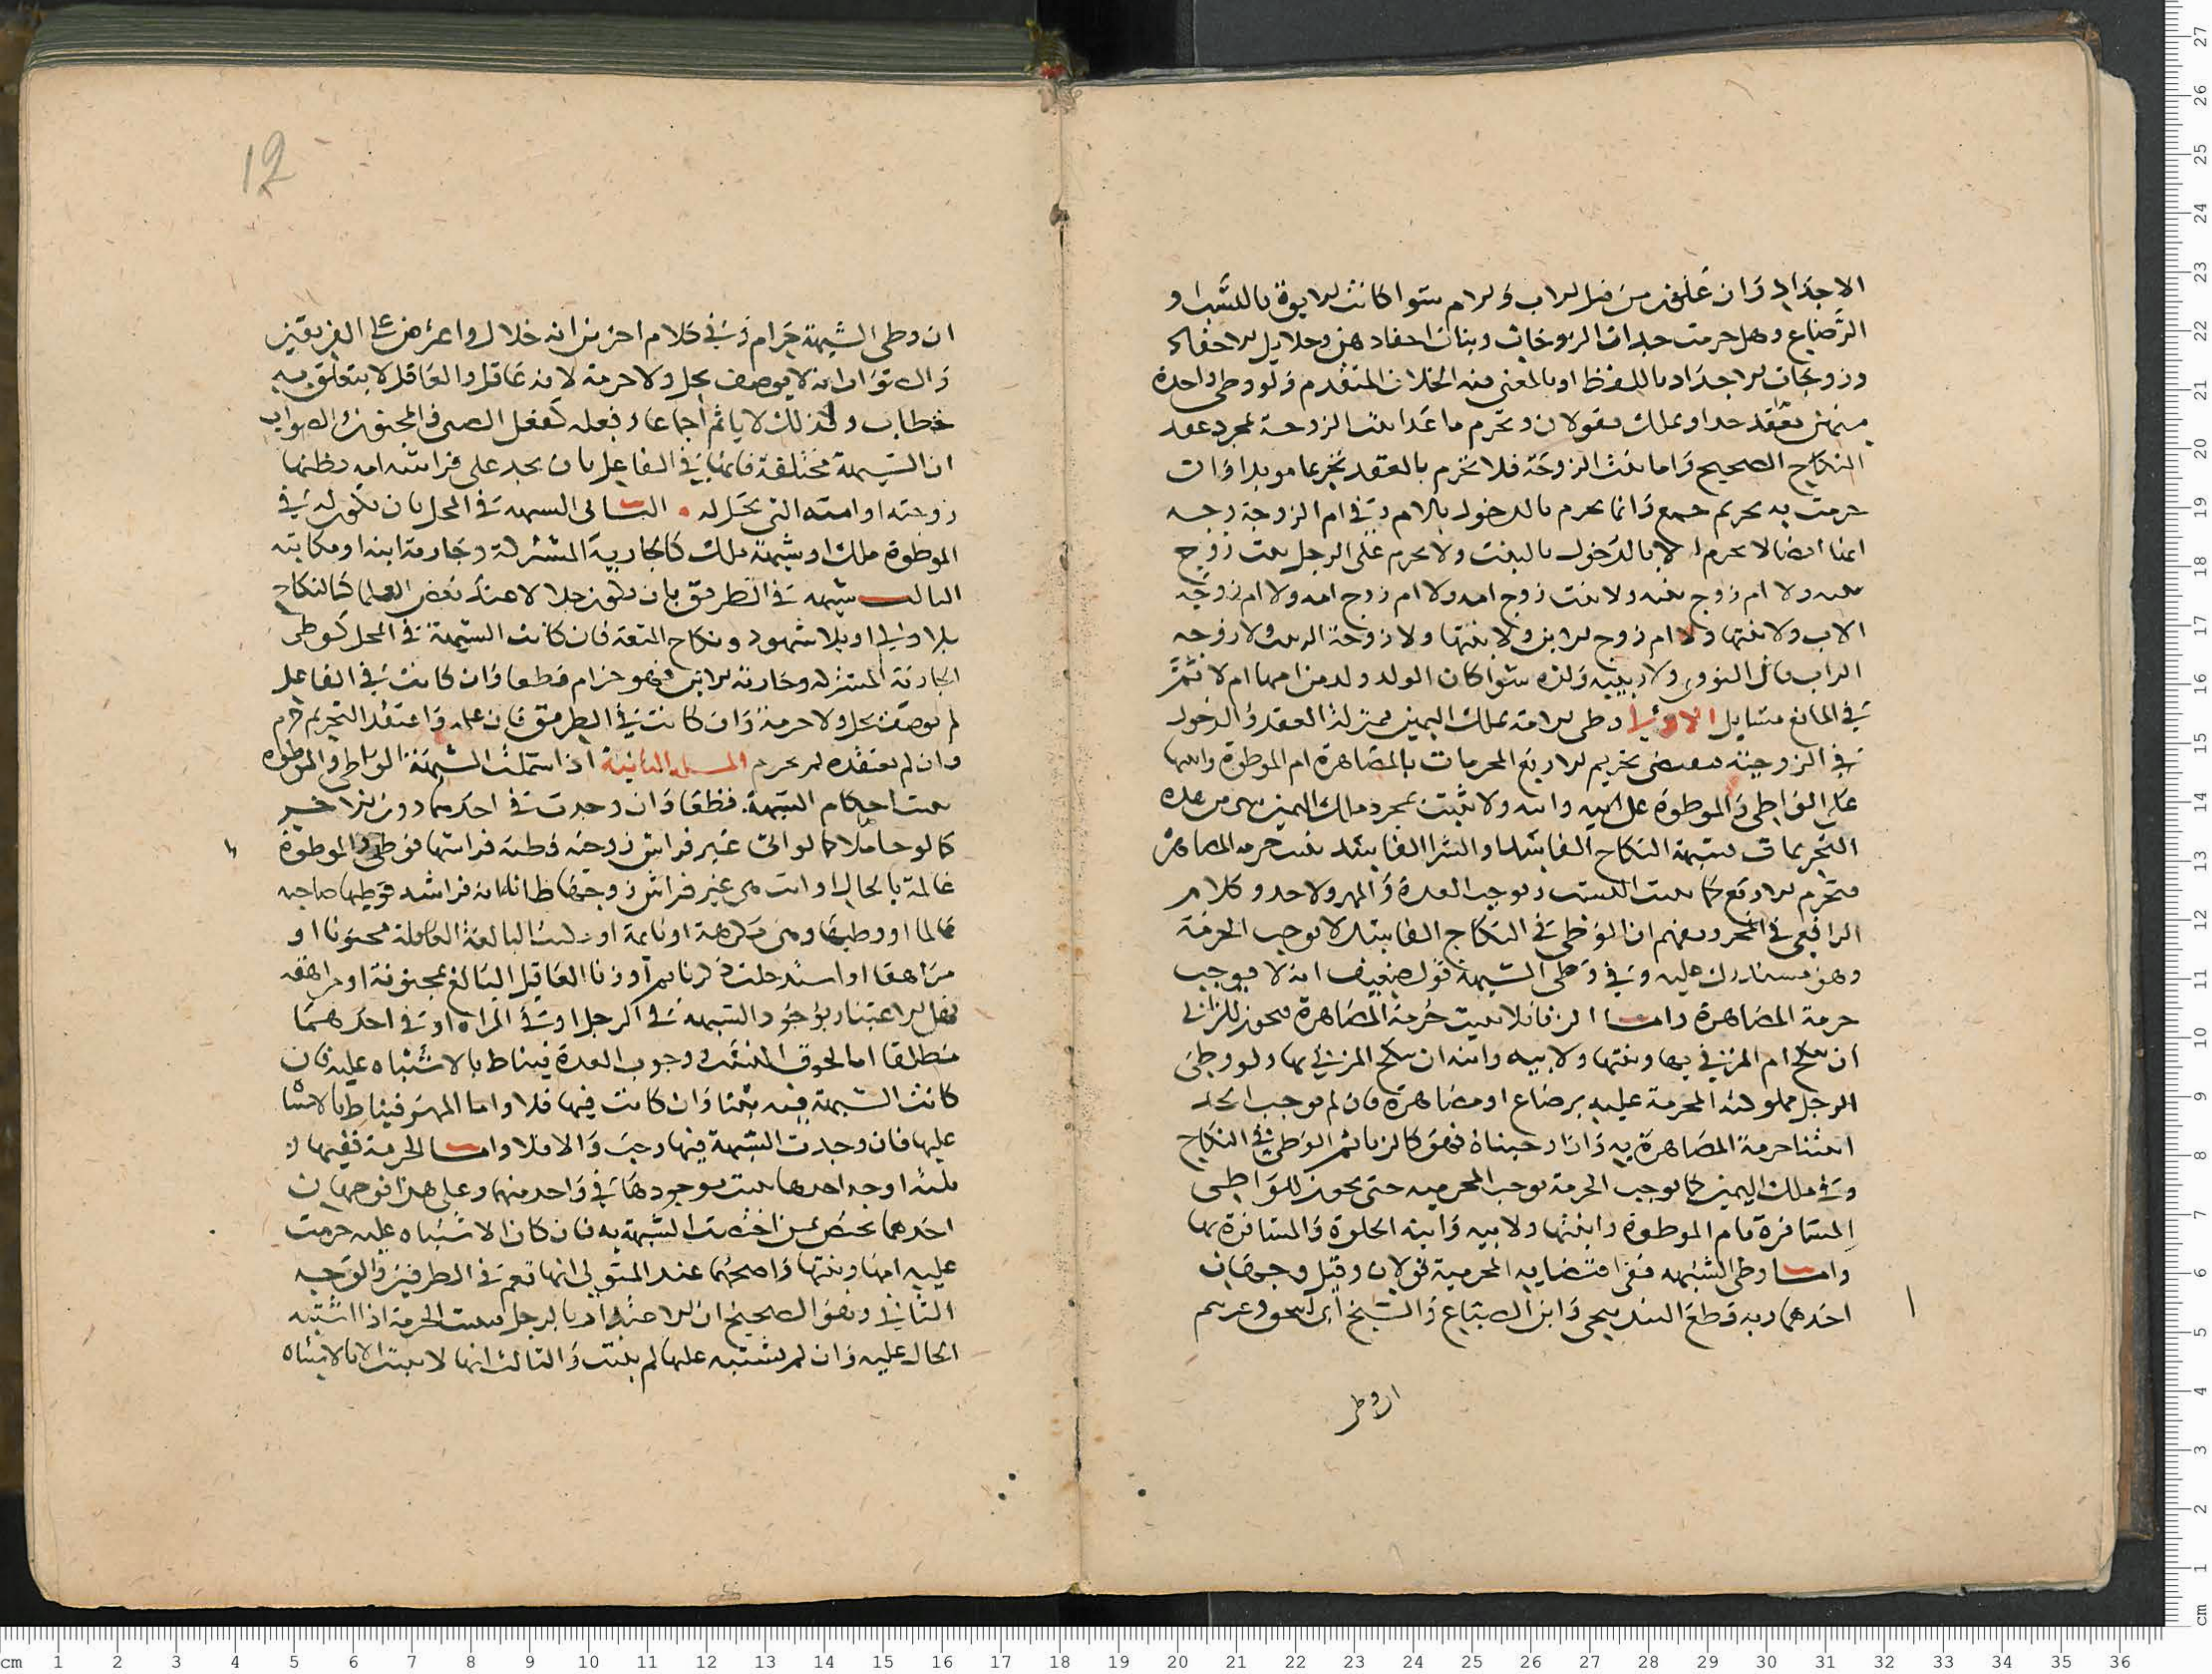 الاجداد وان علون من قبل الاب والام سوا كانت الابوة بالنسب او
الرضاع وهل حرمت جدات الزوجات وبنات احفادهن وحلايل الاحفاد
وزوجات الاجداد باللفظ او بالمعنى فيه الخلاف المتقدم ولو وطى واحدة
منهن بعقد حد او بملك فقولان وتحرم ما عدا بنت الزوجة بمجرد عقد
النكاح الصحيح واما بنت الزوجة فلا تحرم بالعقد تحريما موبدا وان
حرمت به تحريم جمع وانما يحرم بالدخول بالام وفي ام الزوجة وجه
انها ايضا لا تحرم الا بالدخول بالبنت ولا يحرم على الرجل بنت زوج
بنته ولا ام زوج بنته ولا بنت زوج امه ولا ام زوج امه ولا ام زوجة
الاب ولا بنتها ولا ام زوج الابن ولا بنتها ولا زوجة الربيب ولا زوجة
الراب قال النووي ولا ربيبة ولده سوا كان الولد ولد من امها ام لا ثم
في المانع مسايل الاولى وطى الامة بملك اليمين بمنزلة العقد والدخول
في الزوجية فيقتضى تحريم الاربع المحرمات بالمصاهرة ام الموطوة وابنتها
على الواطى والموطوة على ابيه وابنه ولا يثبت بمجرد ملك اليمين شى من هذه
التحريمات وشبهة النكاح الفاسد او الشرا الفاسد يثبت حرمة المصاهرة
فتحرم الاربع كما يثبت النسب ويوجب العدة والمهر ولا حد وكلام
الرافعي في المحرر يفهم ان الوطى في النكاح الفاسد لا يوجب الحرمة
وهو مستدرك عليه وفي وطى الشبهة قول ضعيف انه لا يوجب
حرمة المصاهرة واما الزنا فلا يثبت حرمة المصاهرة فيجوز للزاني
ان ينكح ام المزني بها وبنتها ولابيه وابنه ان ينكح المزني بها ولو وطى
الرجل مملوكته المحرمة عليه برضاع او مصاهرة فان لم نوجب الحد
اثبتنا حرمة المصاهرة به وان اوجبناه فهو كالزنا ثم الوطى في النكاح
وفي ملك اليمين كما يوجب الحرمة يوجب المحرمية حتى يجوز للواطى
المسافرة بام الموطوة وابنتها ولابيه وابنه الخلوة والمسافرة بها
واما وطى الشبهة ففى اقتضايه المحرمية قولان وقيل وجهان
احدهما وبه قطع البندنيجى وابن الصباغ والشيخ ابى اسحق وغيرهم
ان وطى
12
ان وطى الشبهة حرام وفي كلام اخرين انه حلال واعترض على الفريقين
والصواب انه لا يوصف بحل ولا حرمة لانه غافل والغافل لا يتعلق به
خطاب ولذلك لا ياثم اجماعا وفعله كفعل الصبي والمجنون والصواب
ان الشبهة مختلفة فانها في الفاعل بان يجد على فراشه امراة يظنها
زوجته او امته التي تحل له . الثاني الشبهة في المحل بان تكون له في
الموطوة ملك او شبهة ملك كالجارية المشتركة وجارية ابنه او مكاتبه
الثالث شبهة في الطريق بان يكون حلالا عند بعض العلما كالنكاح
بلا ولى او بلا شهود ونكاح المتعة فان كانت الشبهة في المحل كوطى
الجارية المشتركة وجارية الابن فهو حرام قطعا وان كانت في الفاعل
لم يوصف بحل ولا حرمة وان كانت في الطريق فان علم واعتقد التحريم حرم
وان لم يعتقده لم يحرم المسئلة الثانية اذا شملت الشبهة الواطى والموطوة
يثبت احكام الشبهة قطعا وان وجدت في احدهما دون الاخر
كما لو اتى غير فراش زوجته وظنه فراشها فوطى والموطوة
عالمة بالحال او اتت هى غير فراش زوجها ظانة انه فراشه فوطيها صاحبه
عالما او وطيها وهى مكرهة او نايمة او البالغة العاقلة مجنونا او
مراهقا او استدخلت ذكر نايم او زنا العاقل البالغ بمجنونة او مراهقة
فهل الاعتبار بوجود الشبهة في الرجل او في المراه او في احدهما
مطلقا اما لحوق النسب ووجوب العدة فيناط بالاشتباه عليه فان
كانت الشبهة فيه ثبتا وان كانت فيها فلا واما المهر فيناط بالاشتباه
عليها فان وجدت الشبهة فيها وجب والا فلا واما الحرمة ففيها
ثلثة اوجه احدها يثبت بوجودها في واحد منهما وعلى هذا فوجهان
احدهما يختص بمن اختصت الشبهة به فان كان الاشتباه عليه حرمت
عليه امها وبنتها واصحهما عند المتولي انها تعم في الطرفين والوجه
الثاني وهو الصحيح ان الاعتبار بالرجل فيثبت الحرمة اذا اشتبه
الحال عليه وان لم يشتبه عليها لم يثبت والثالث انها لا يثبت الا بالاشتباه